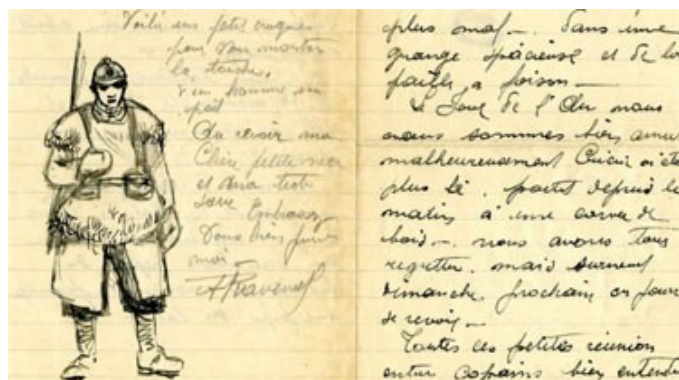 Voilà un petit croquis
pour vous montrer
la touche,
d'un homme en
poil
Au revoir ma
Chère petite
et ma
Sœur Embrassez
bien pour
moi —
plus mal — Dans une
grange spacieuse et de la
paille a foison —
Le Jour de l'An nous
nous sommes bien
malheureusement
plus là, partit depuis le
matin à une corvée de
bois — nous avons tous
regretter. mais
dimanche prochain on pourra
se revoir —
Toutes ces petites réunion
entre copains bien entendu